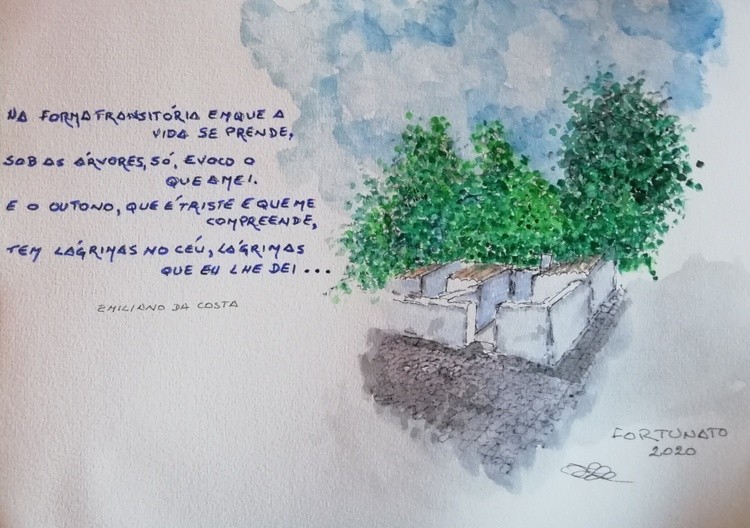 NA FORMA TRANSITÓRIA EM QUE A
VIDA SE PRENDE,
SOB AS ÁRVORES, SÓ, EVOCO O
QUE AMEI.
E O OUTONO, QUE É TRISTE E QUE ME
COMPREENDE,
TEM LÁGRIMAS NO CÉU, LÁGRIMAS
QUE EU LHE DEI ...
EMILIANO DA COSTA
FORTUNATO
2020